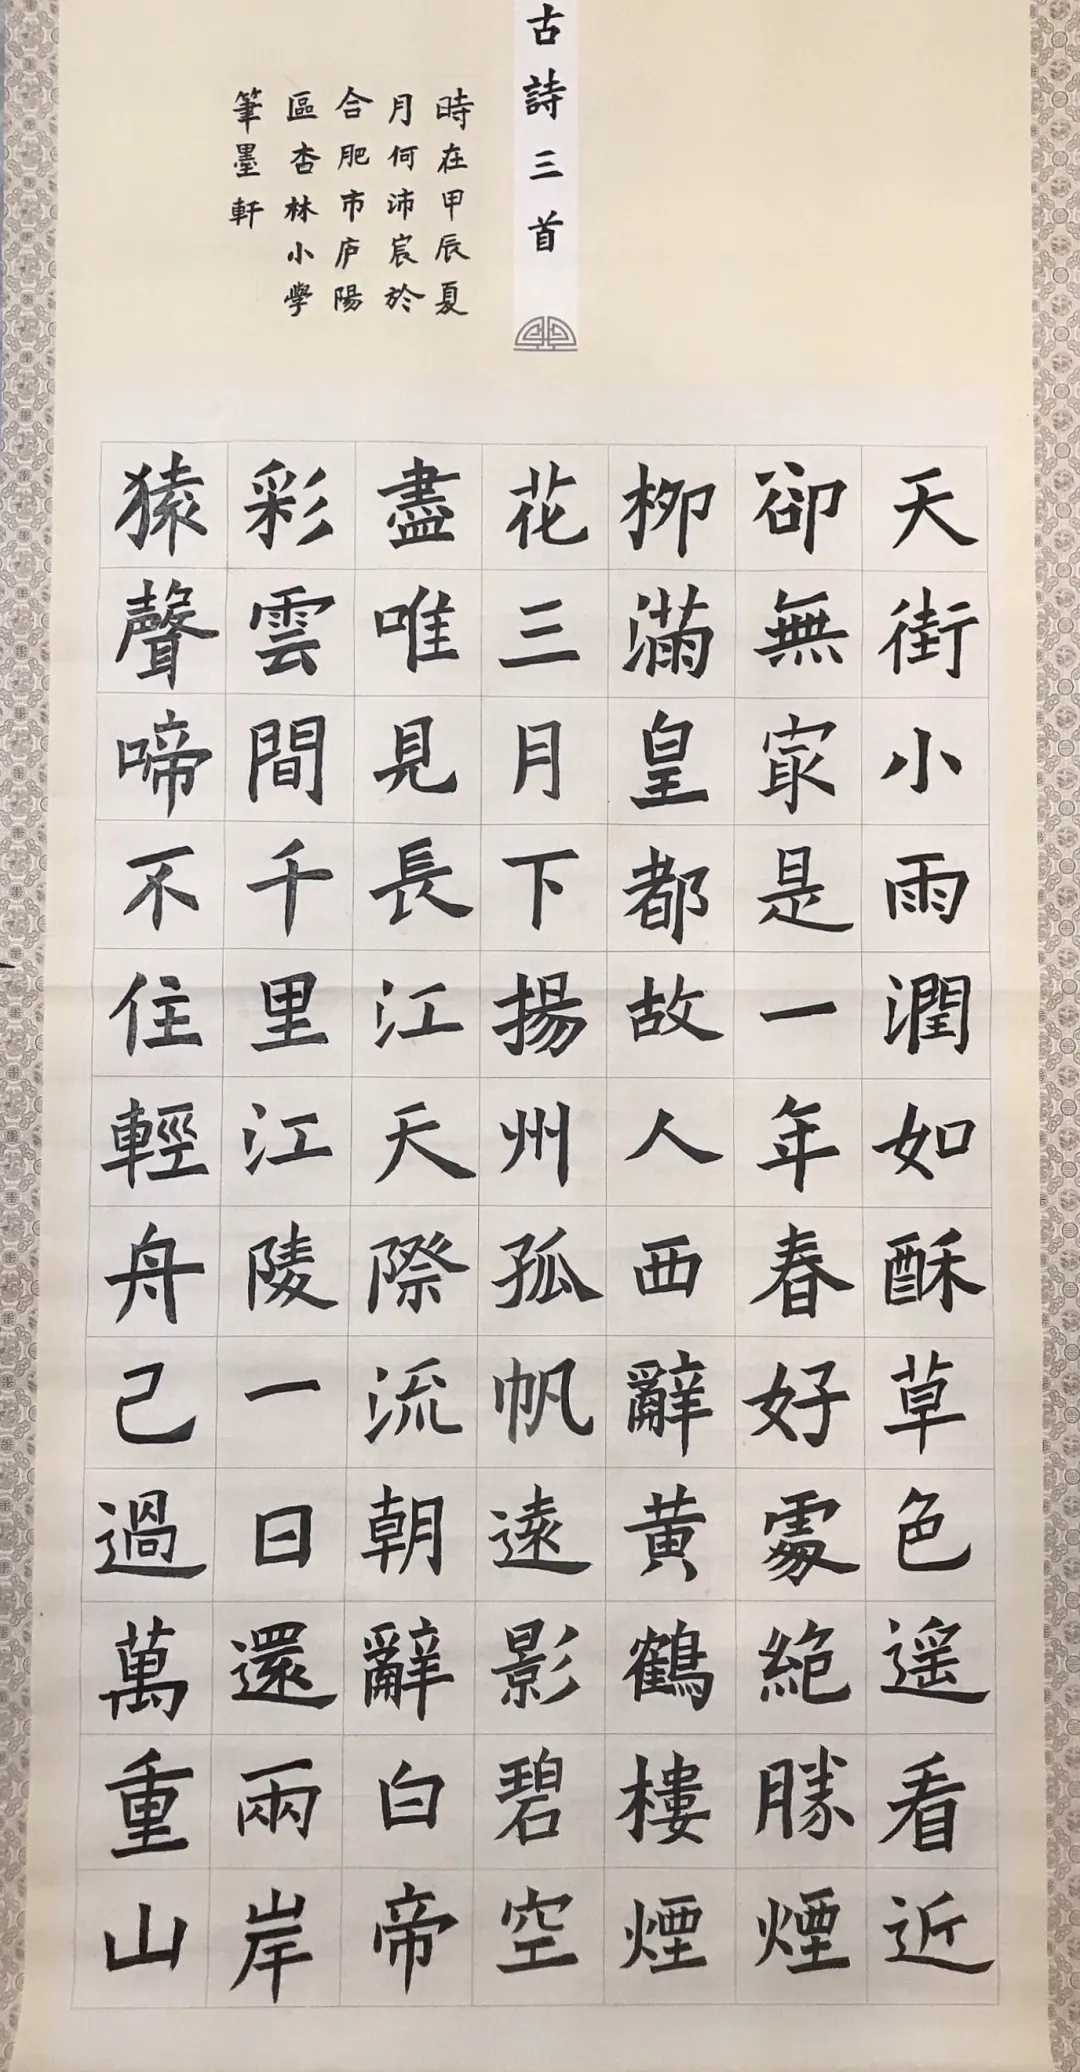 古詩三首
時在甲辰夏
月何沛宸於
合肥市庐陽
區杏林小學
筆墨軒
天街小雨潤如酥草色遥看近
卻無冣是一年春好處絶勝煙
柳滿皇都故人西辭黄鶴樓煙
花三月下揚州孤帆遠影碧空
盡唯見長江天際流朝辭白帝
彩雲間千里江陵一日還兩岸
猿聲啼不住輕舟己過萬重山